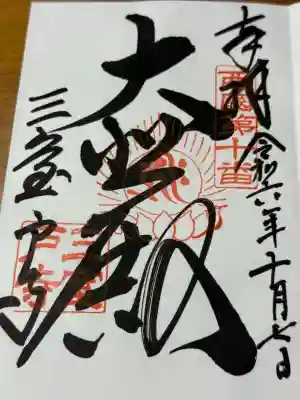 奉拝 令和六年十月七日
西国第十番
大悲殿
三室戸寺